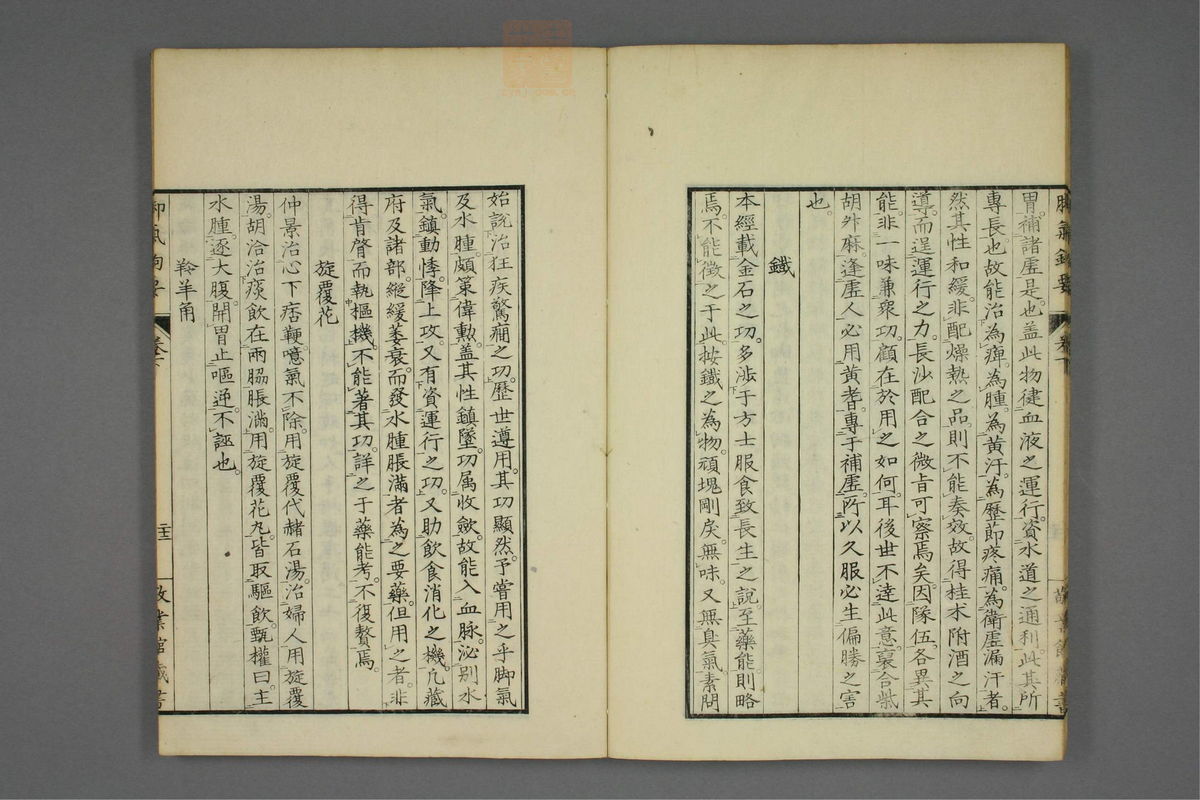 胃。補諸虛是也。盖此物健血液之運行。資水道之通利。此其所
專長也。故能治為痺。為腫。為黃汗。為歷節疼痛。為衛虛漏汗者。
然其性和緩。非配燥熱之品。則不能奏效。故得桂朮附酒之向
導。而逞運行之力。長沙配合之微旨可察焉矣。因隊伍。各異其
能。非一味兼衆功。顧在於用之如何耳。後世不達此意。裒合柴
胡舛麻。逢虛人必用黃耆。專于補虛。所以久服必生偏勝之害
也。
鐵
本經載金石之功。多涉于方士服食致長生之說。至藥能。則略
焉。不能徵之于此。按鐵之為物。頑塊剛戾。無味。又無臭氣。素問
始說治狂疾驚癎之功。歷世遵用。其功顯然。予嘗用之乎脚氣
及水腫。頗策偉勲。盖其性鎮墜。功属收歛。故能入血脉。泌別水
氣。鎮動悸。降上攻。又有資運行之功。又助飲食消化之機。凢藏
府及諸部。縱緩萎衰。而發水腫脹滿者。為之要藥。但用之者。非
得肯綮而執樞機。不能著其功。詳之于藥能考。不復贅焉。
旋覆花
仲景治心下痞鞕。噫氣不除。用旋覆代赭石湯。治婦人。用旋覆
湯。胡洽治痰飲在兩脇脹滿。用旋覆花丸。皆取驅飲。甄權曰。主
水腫。逐大腹。開胃止嘔逆。不誣也。
羚羊角